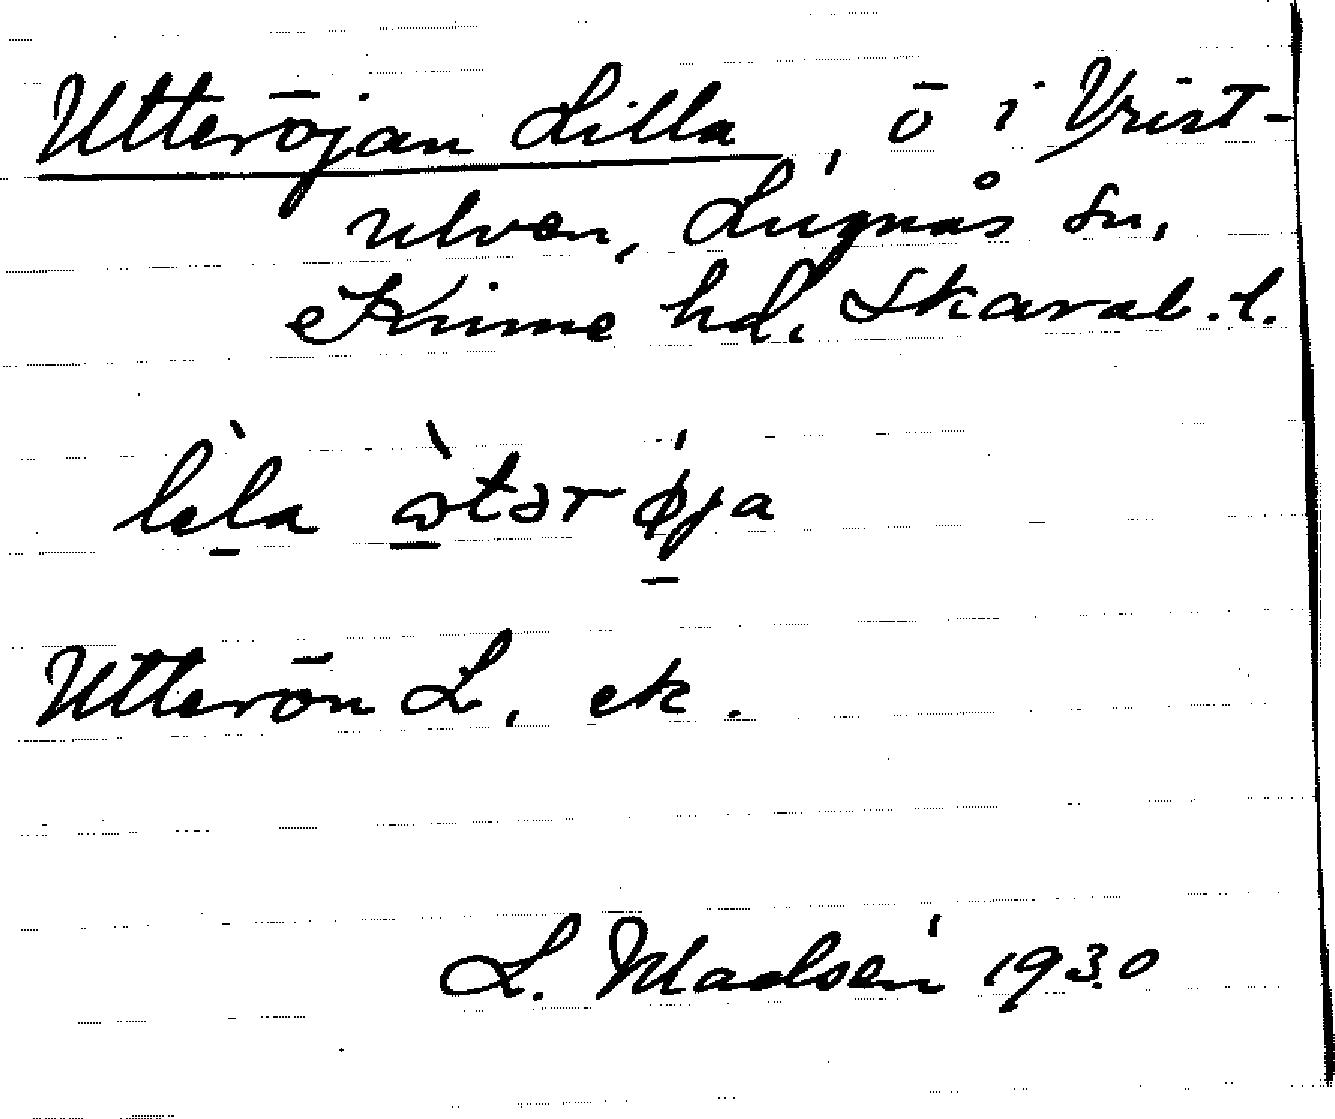 Utteröjan Lilla, ö i Vrist-
ulven, Lugnås sn,
Kinne hd. Skarab. l.
lèla ɷ̀tər ǿja
Utterön L. ek.
L. Madsén 1930